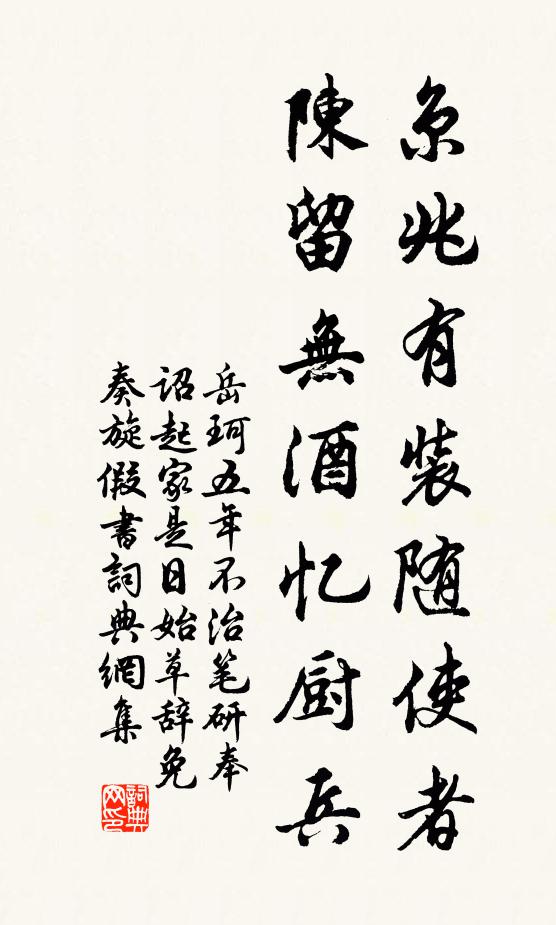 京兆有装随使者
陳留無酒忆厨兵
岳珂五年不治笔研奉
诏起家是日始草辞免
奏旋假書詞典網集
詞典网印